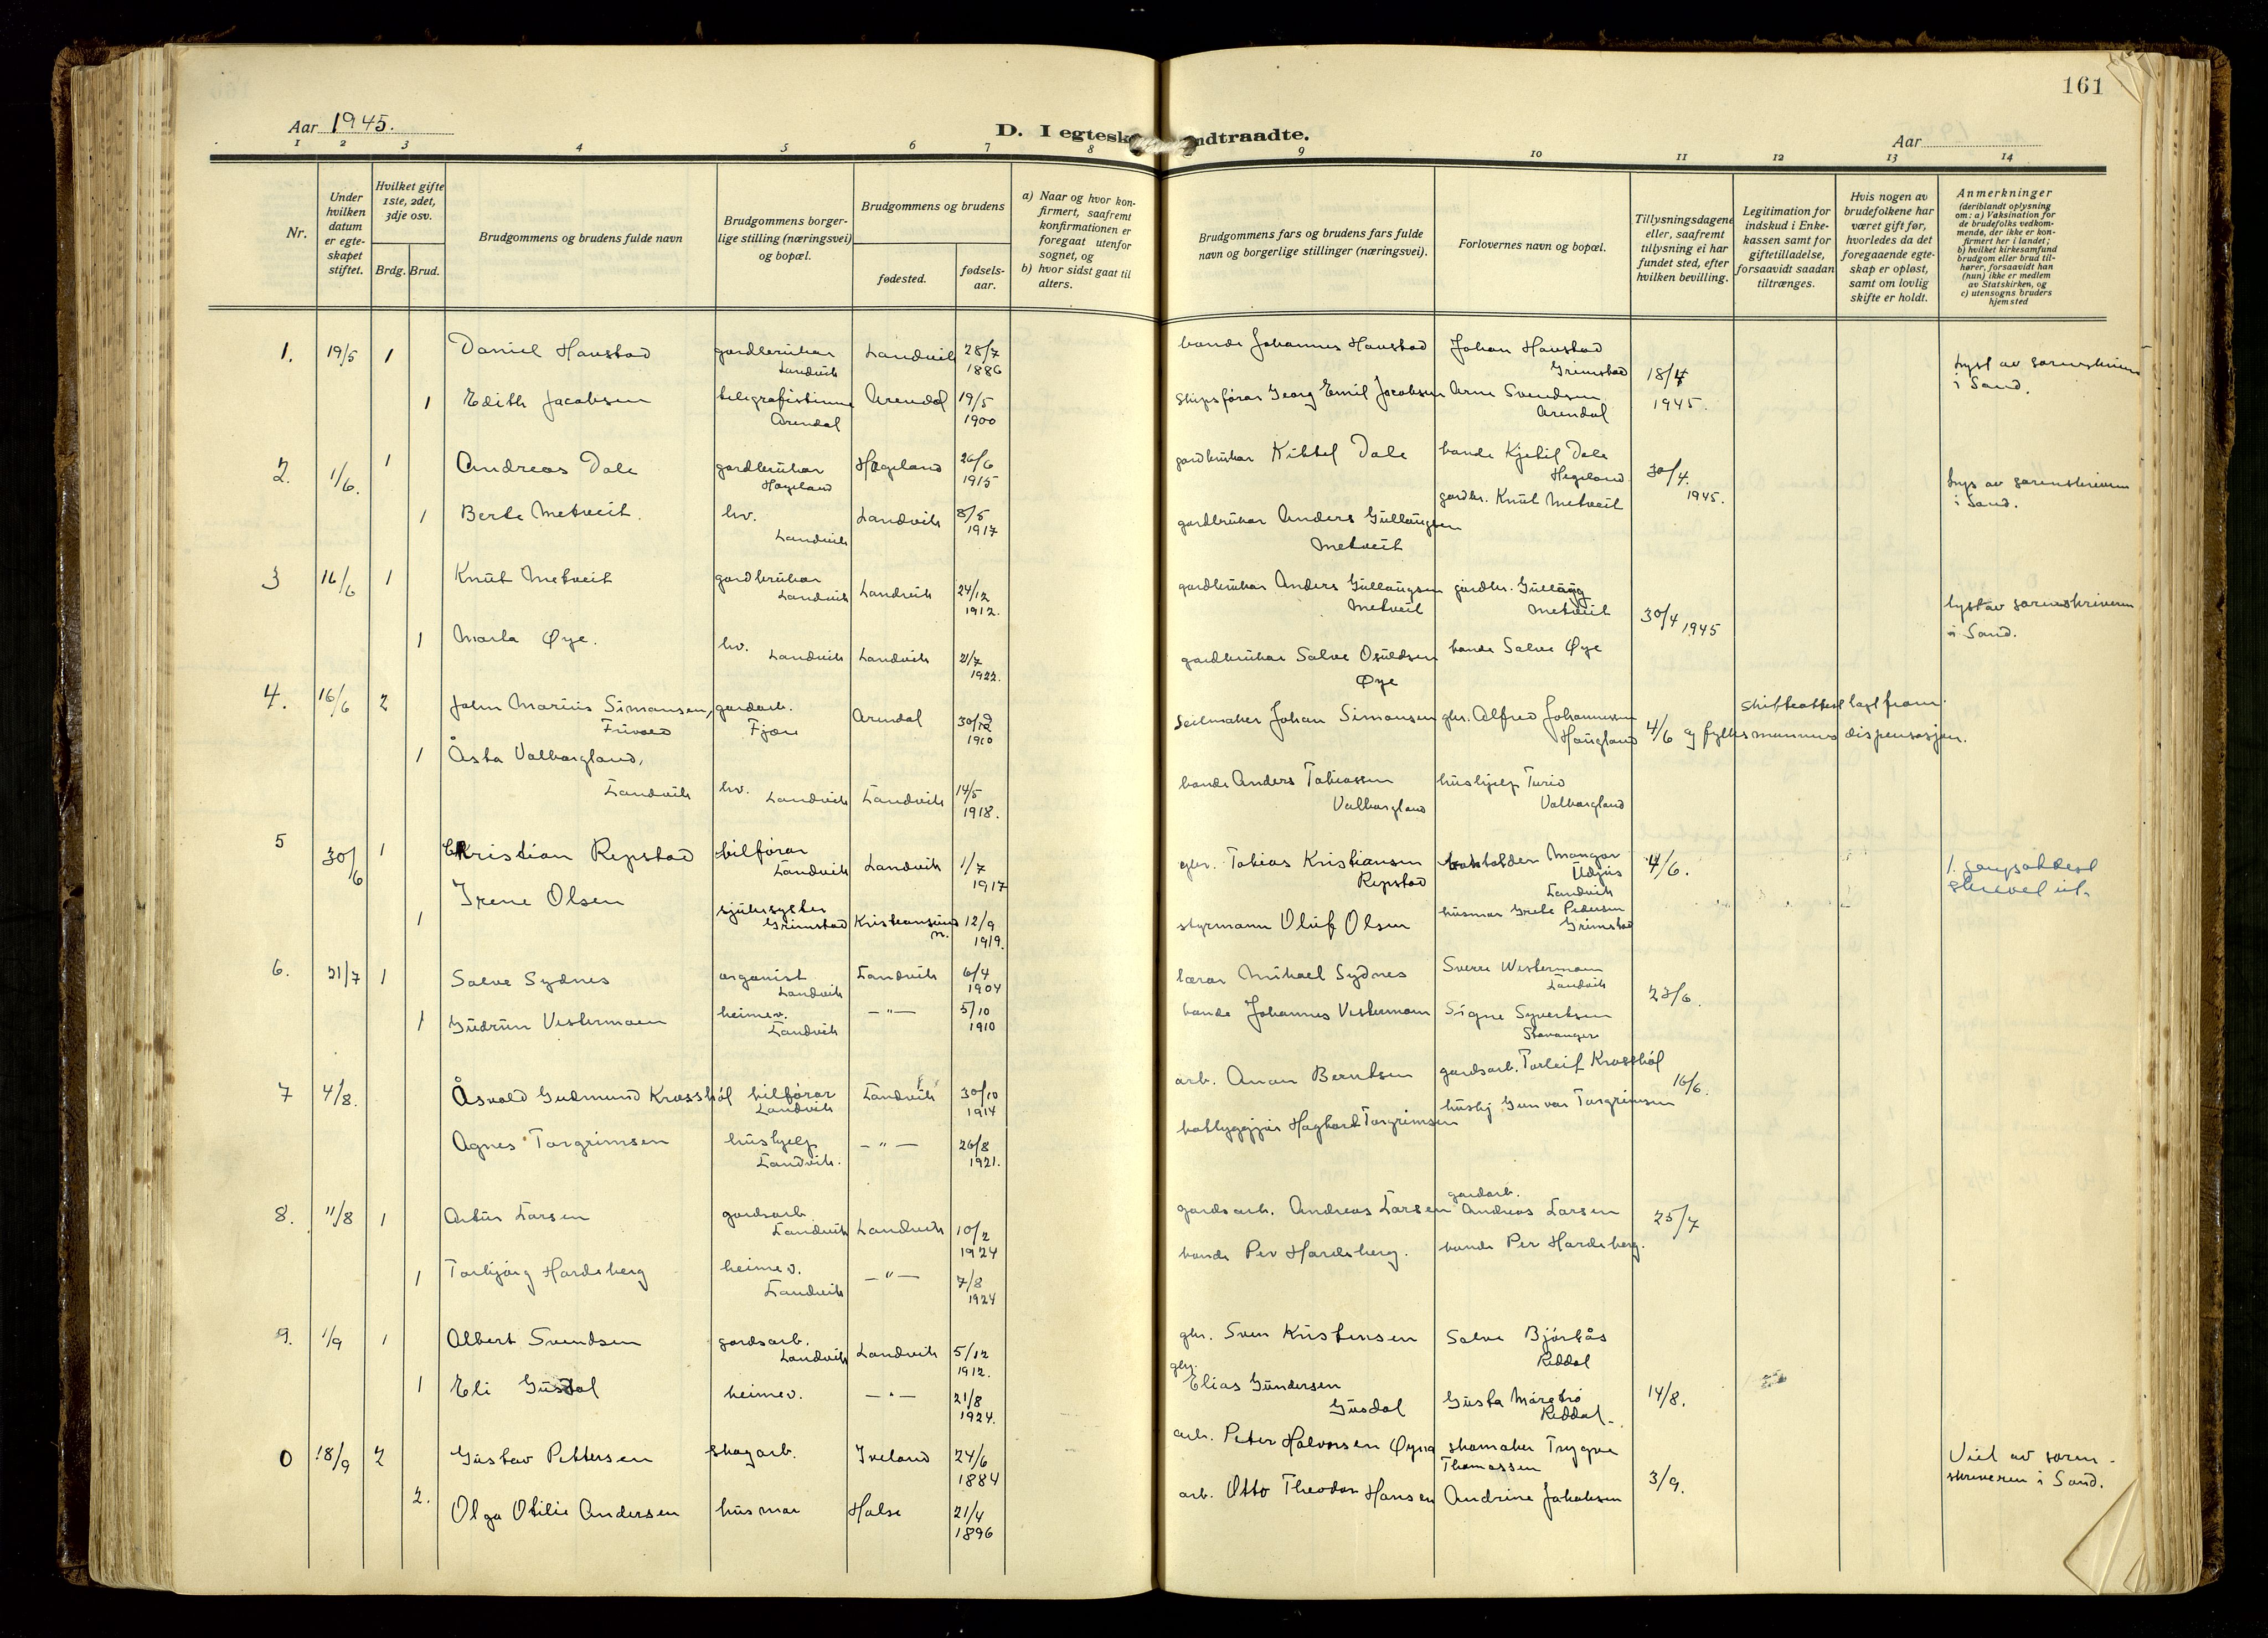 161
Aar 1945.
D. I egtesk
ndtraadte.
Aar
1 2 3 4 5 6 7 8 9 10 11 12 13 14
Nr.
Under hvilken datum er egte-skapet stiftet.
Hvilket gifte 1ste, 2det, 3dje osv.
Brdg. Brud.
Brudgommens og brudens fulde navn
Brudgommens borger-lige stilling (næringsvei) og bopæl.
Brudgommens og brudens
fødested.
fødsels-aar.
a) Naar og hvor kon-firmert, saafremt konfirmationen er foregaat utenfor sognet, og
b) hvor sidst gaat til alters.
Brudgommens fars og brudens fars fulde navn og borgerlige stillinger (næringsvei).
Forlovernes navn og bopæl.
Tillysningsdagene eller, saafremt tillysning ei har fundet sted, efter hvilken bevilling.
Legitimation for indskud i Enke-kassen samt for giftetilladelse, forsaavidt saadan tiltrænges.
Hvis nogen av brudefolkene har været gift før, hvorledes da det foregaaende egte-skap er opløst, samt om lovlig skifte er holdt.
Anmerkninger
(deriblandt oplysning om: a) Vaksination for de brudefolks vedkom-mende, der ikke er kon-firmert her i landet; b) hvilket kirkesamfund brudgom eller brud til-hører, forsaavidt han (hun) ikke er medlem av Statskirken, og c) utensogns bruders hjemsted
1. 19/5 1 Daniel Haustad gardbrukar Landvik Landvik 28/7 1886 bonde Johannes Haustad Johan Haustad Grimstad 18/4 1945. Lyst av sorenskriveren i Sand.
1 Edith Jacobsen telegrafistinne Arendal Arendal 19/5 1900 skipsførar Georg Emil Jacobsen Arne Svendsen Arendal
2. 1/6. 1 Andreas Dale gardbrukar Høgeland Høgeland 26/6 1915 gardbrukar Kittel Dale bonde Kjetil Dale Hegeland 30/4. 1945. Lys av sorenskriveren i Sand.
1 Berte Metveit. hv. Landvik Landvik 8/5 1917 gardbrukar Anders Gullaugsen Metveit gardbr. Knut Metveit
3 16/6 1 Knut Metveit gardbrukar Landvik Landvik 24/12 1912. gardbrukar Anders Gullaugsen Metveit gardbr. Gullaug Metveit 30/4 1945 lyst av sorenskriveren i Sand.
1 Marta Øye. hv. Landvik Landvik 21/7 1922. gardbrukar Salve Osuldsen Øye bonde Salve Øye
4. 16/6 2 John Marius Simonsen, Frivold gardarb. Fjære Arendal 30/12 1910 seilmaker Johan Simonsen gbr. Alfred Johannessen Haugland 4/6 skifteattest lagt fram. og fylkesmannens dispensasjon.
1 Åsta Valborgland, Landvik hv. Landvik Landvik 14/5 1918. bonde Anders Tobiassen Valborgland hushjelp Turid Valborgland
5 30/6 1 Kristian Repstad bilførar Landvik Landvik 1/7 1917 gbr. Tobias Kristiansen Repstad Mangor Udjus Landvik 4/6.
1 Irene Olsen sjukesyster Grimstad Kristiansund n. 12/9 1919. styrmann Oluf Olsen husmor Grete Pedersen Grimstad
6. 21/7 1 Salve Sydnes organist Landvik Landvik 6/4 1904 lærar Mikael Sydnes Sverre Westermoen Landvik 23/6.
1 Gudrun Vestermoen heimev. Landvik — " — 5/10 1910 bonde Johannes Vestermoen Signe Syvertsen Stavanger
7 4/8. Åsvald Gudmund Krosshål bilførar Landvik Landvik 30/10 1914 arb. Anon Berntsen gardsarb. Torleif Krosshål 16/6.
Agnes Torgrimsen hushjelp Landvik. — " — 26/8 1921. båtbyggjar Hagbart Torgrimsen hushj Gunvor Torgrimsen
8. 11/8 1 Artur Larsen gardsarb. Landvik Landvik 10/2 1924 gardsarb. Andreas Larsen gardarb. Andreas Larsen 25/7
1 Torbjørg Hardeberg heimev. Landvik — " — 7/8 1924 bonde Per Hardeberg. bonde Per Hardeberg.
9. 1/9 1 Albert Svendsen gardsarb. Landvik Landvik 5/12 1912. gbr. Sven Kristensen Salve Bjørkås Reddal
1 Eli Gusdal heimev. — " — 21/8 1924. gbr. Elias Gundersen Gusdal Gusta Moretrø Reddal. 14/8.
0 18/9 2 Gustav Pettersen skogarb. Iveland 24/6 1884 arb. Peter Halvorsen Øyna skomaker Trygve Thomassen 3/9. Viet av soren-skriveren i Sand.
2. Olga Otilie Andersen husmor Halse 21/4 1896 arb. Otto Theodor Hansen Andrine Jakobsen